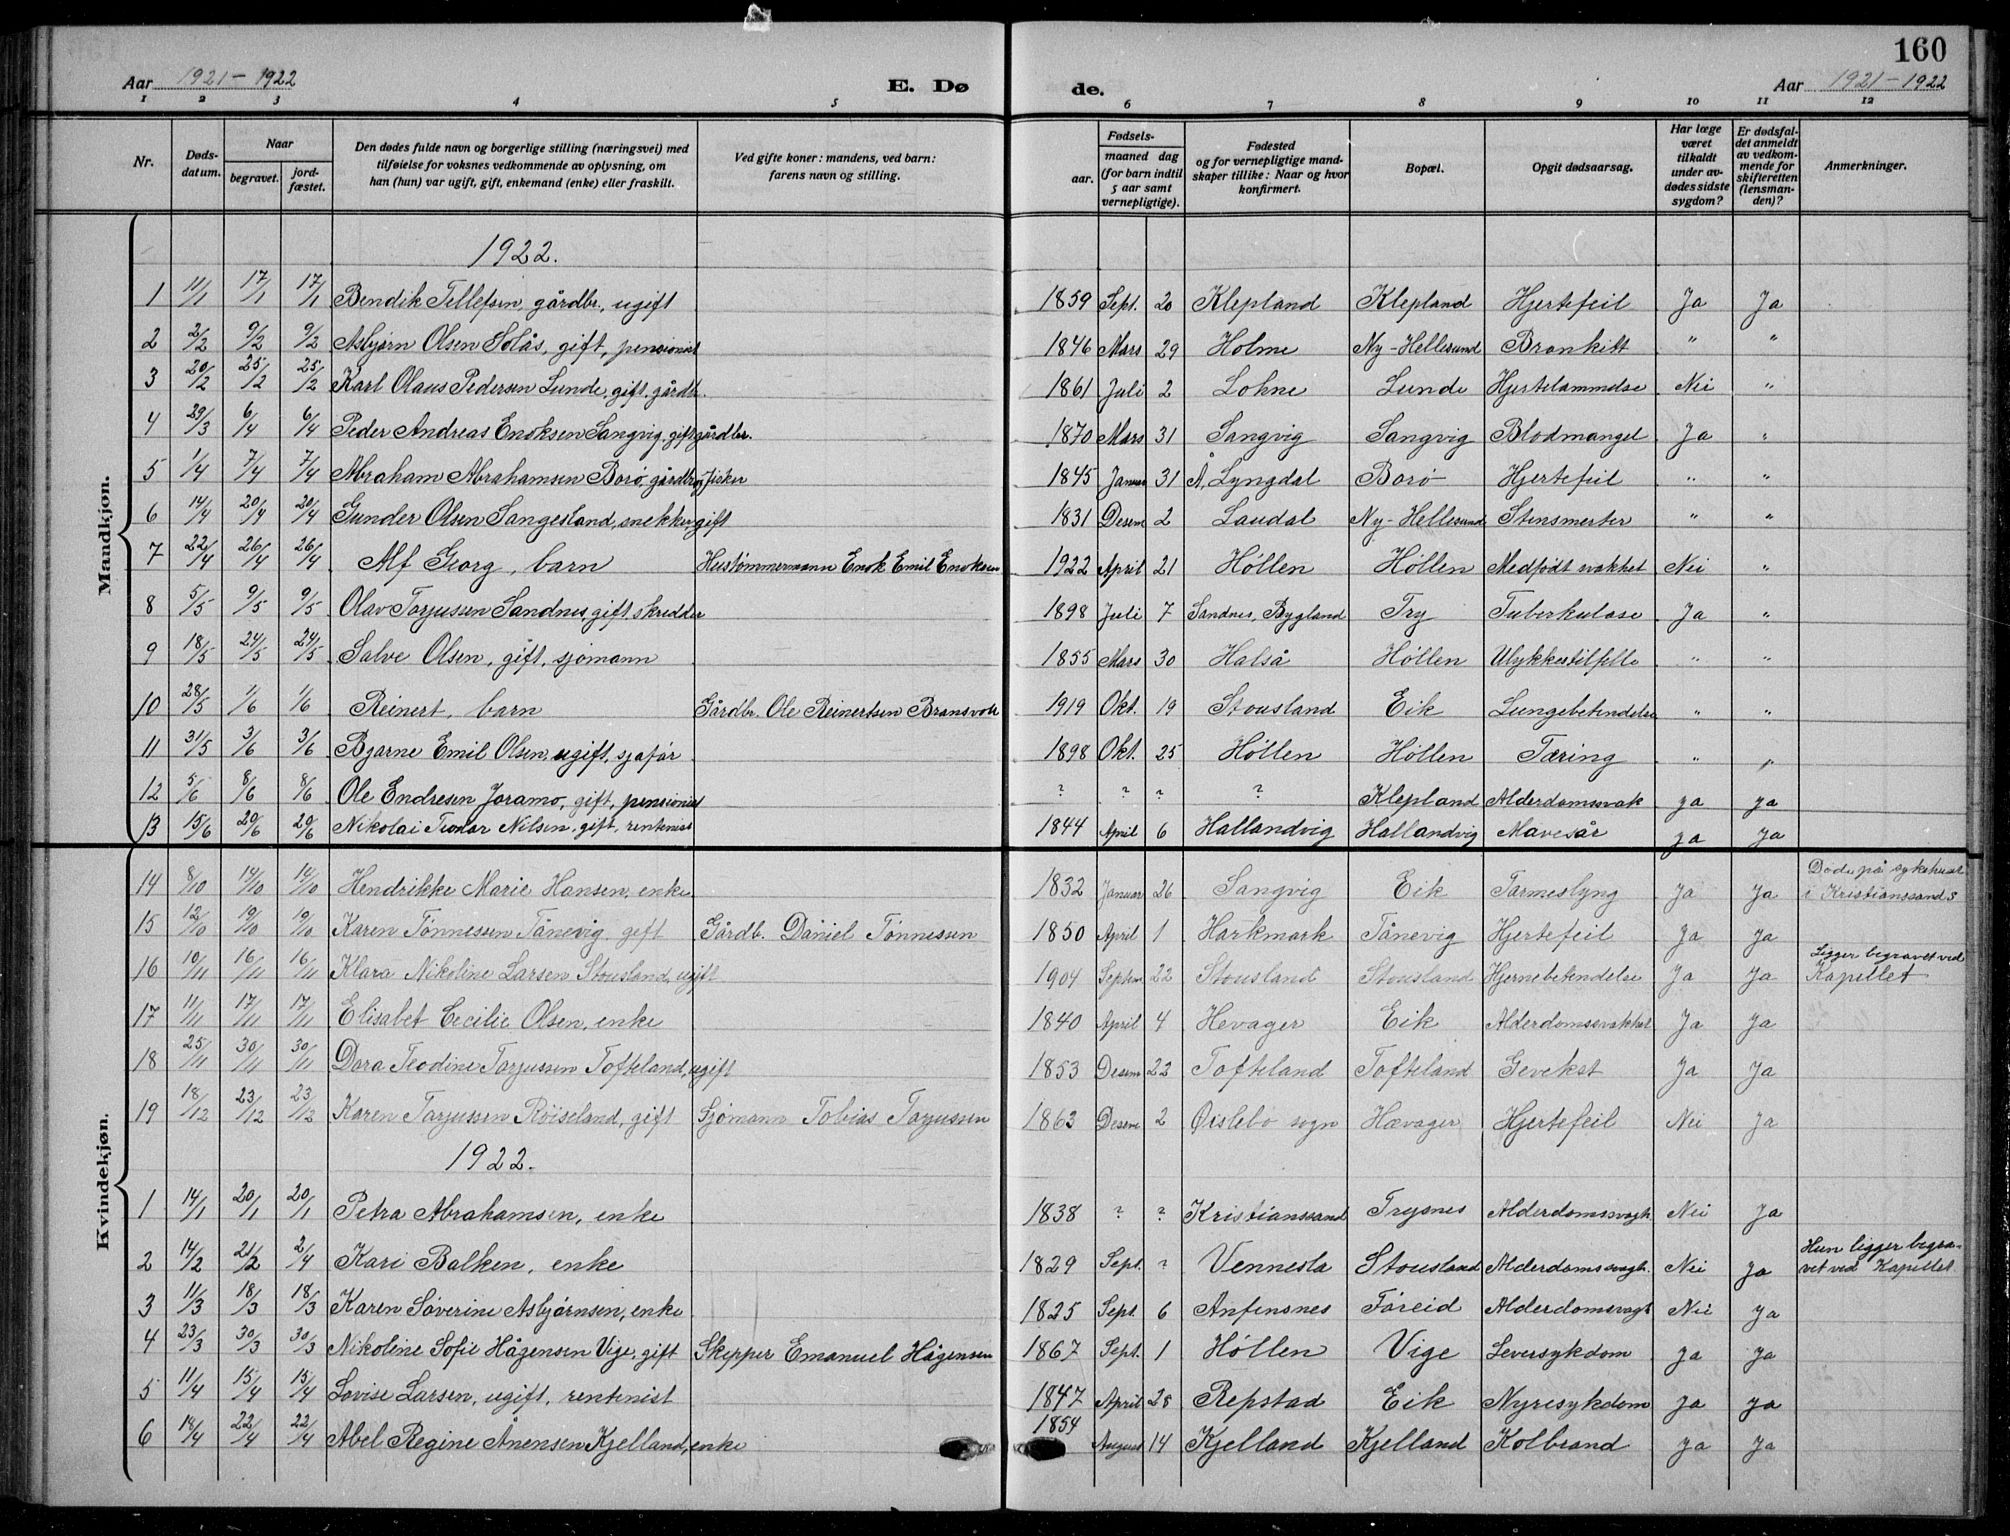 160
Aar 1921-1922 E. Dø de. Aar 1921-1922
1 2 3 4 5 6 7 8 9 10 11 12
Nr. Dødsdatum. Naar begravet. jordfæstet. Den dødes fulde navn og borgerlige stilling (næringsvei) med tilføielse for voksnes vedkommende av oplysning, om han (hun) var ugift, gift, enkemand (enke) eller fraskilt. Ved gifte koner: mandens, ved barn: farens navn og stilling. Fødsels- aar. maaned dag (for barn indtil 5 aar samt vernepligtige). Fødested og for vernepligtige mandskaper tillike: Naar og hvor konfirmert. Bopæl. Opgit dødsaarsag. Har læge været tilkaldt under avdødes sidste sygdom? Er dødsfaldet anmeldt av vedkommende for skifteretten (lensmanden)? Anmerkninger.
Mandkjøn.
1922.
1 11/1 17/1 17/1 Bendik Tellefsen, gårdbr., ugift 1859 Sept. 20 Klepland Klepland Hjertefeil Ja Ja
2 2/2 9/2 9/2 Asbjørn Olsen Solås, gift, pensionist 1846 Mars 29 Holme Ny-Hellesund Bronkitt " "
3 20/2 25/2 25/2 Karl Olaus Pedersen Lunde, gift, gårdbr. 1861 Juli 2 Lohne Lunde Hjertelammelse Nei "
4 29/3 6/4 6/4 Peder Andreas Enoksen Sangvig, gift, gårdbr. 1870 Mars 31 Sangvig Sangvig Blodmangel Ja "
5 1/4 7/4 7/4 Abraham Abrahamsen Borø, gårdbr og fisker 1845 Januar 31 Å, Lyngdal Borø Hjertefeil " "
6 14/4 20/4 20/4 Gunder Olsen Sangesland, snekker, gift 1831 Desem 2 Laudal Ny-Hellesund Stensmerter " "
7 22/4 26/4 26/4 Alf Georg, barn Hustømmermann Enok Emil Enoksen 1922 April 21 Høllen Høllen Medfødt svakhet Nei "
8 5/5 9/5 9/5 Olav Torjussen Sandnes, gift, skredder 1898 Juli 7 Sandnes, Bygland Try Tuberkulose Ja "
9 18/5 24/5 24/5 Salve Olsen, gift, sjømann 1855 Mars 30 Halså Høllen Ulykkestilfelle " "
10 28/5 1/6 1/6 Reinert, barn Gårdbr. Ole Reinertsen Bransvoll 1919 Okt. 19 Stousland Eik Lungebetendelse " "
11 31/5 3/6 3/6 Bjarne Emil Olsen, ugift, sjøfar 1898 Okt. 25 Høllen Høllen Tæring " "
12 5/6 8/6 8/6 Ole Endresen Joramo, gift, pensionist ? ? ? ? Klepland Alderdomssvak ja ja
13 15/6 20/6 20/6 Nikolai Teodor Nilsen, gift, rentenist 1844 April 6 Hallandvig Hallandvig Mavesår ja ja
Kvindekjøn.
14 8/10 14/10 14/10 Hendrikke Marie Hansen, enke 1832 Januar 26 Sangvig Eik Tarmeslyng Ja Ja Døde på sykehuset i Kristianssand S
15 12/10 19/10 19/10 Karen Tønnessen Tånevig, gift Gårdb. Daniel Tønnessen 1850 April 1 Harkmark Tånevig Hjertefeil Ja Ja
16 10/11 16/11 16/11 Klara Nikoline Larsen Stousland, ugift 1904 Septem 22 Stousland Stousland Hjernebetendelse Ja Ja Ligger begravet ved Kapellet
17 11/11 17/11 17/11 Elisabet Cecilie Olsen, enke 1840 April 4 Hevager Eik Alderdomssvakhet Ja Ja
18 25/11 30/11 30/11 Dora Teodine Torjussen Tofteland, ugift 1853 Desem 22 Tofteland Tofteland Gevekst Ja Ja
19 18/12 23/12 23/12 Karen Torjussen Røiseland, gift Sjømann Tobias Torjussen 1863 Desem 2 Øislebø sogn Hævager Hjertefeil Nei Ja
1922.
1 14/1 20/1 20/1 Petra Abrahamsen, enke 1838 ? ? Kristianssand Trysnes Alderdomssvagh. Nei Ja
2 14/2 21/2 2/4 Kari Balken, enke 1829 Sept. ? Vennesla Stousland Alderdomssvagh. Nei Ja Hun ligger begravet ved Kapellet
3 11/3 18/3 18/3 Karen Søverine Asbjørnsen, enke 1825 Sept. 6 Anfensnes Føreid Alderdomsvagh Nei Ja
4 23/3 30/3 30/3 Nikoline Sofie Hågensen Vige, gift Skepper Emanuel Hågensen 1867 Sept. 1 Høllen Vige Leversykdom Ja Ja
5 11/4 15/4 15/4 Lovise Larsen, ugift, rentenist 1847 April 28 Repstad Eik Nyresykdom Ja Ja
6 18/4 22/4 22/4 Abel Regine Ånensen Kjelland, enke 1854 August 14 Kjelland Kjelland Kolbrand Ja Ja